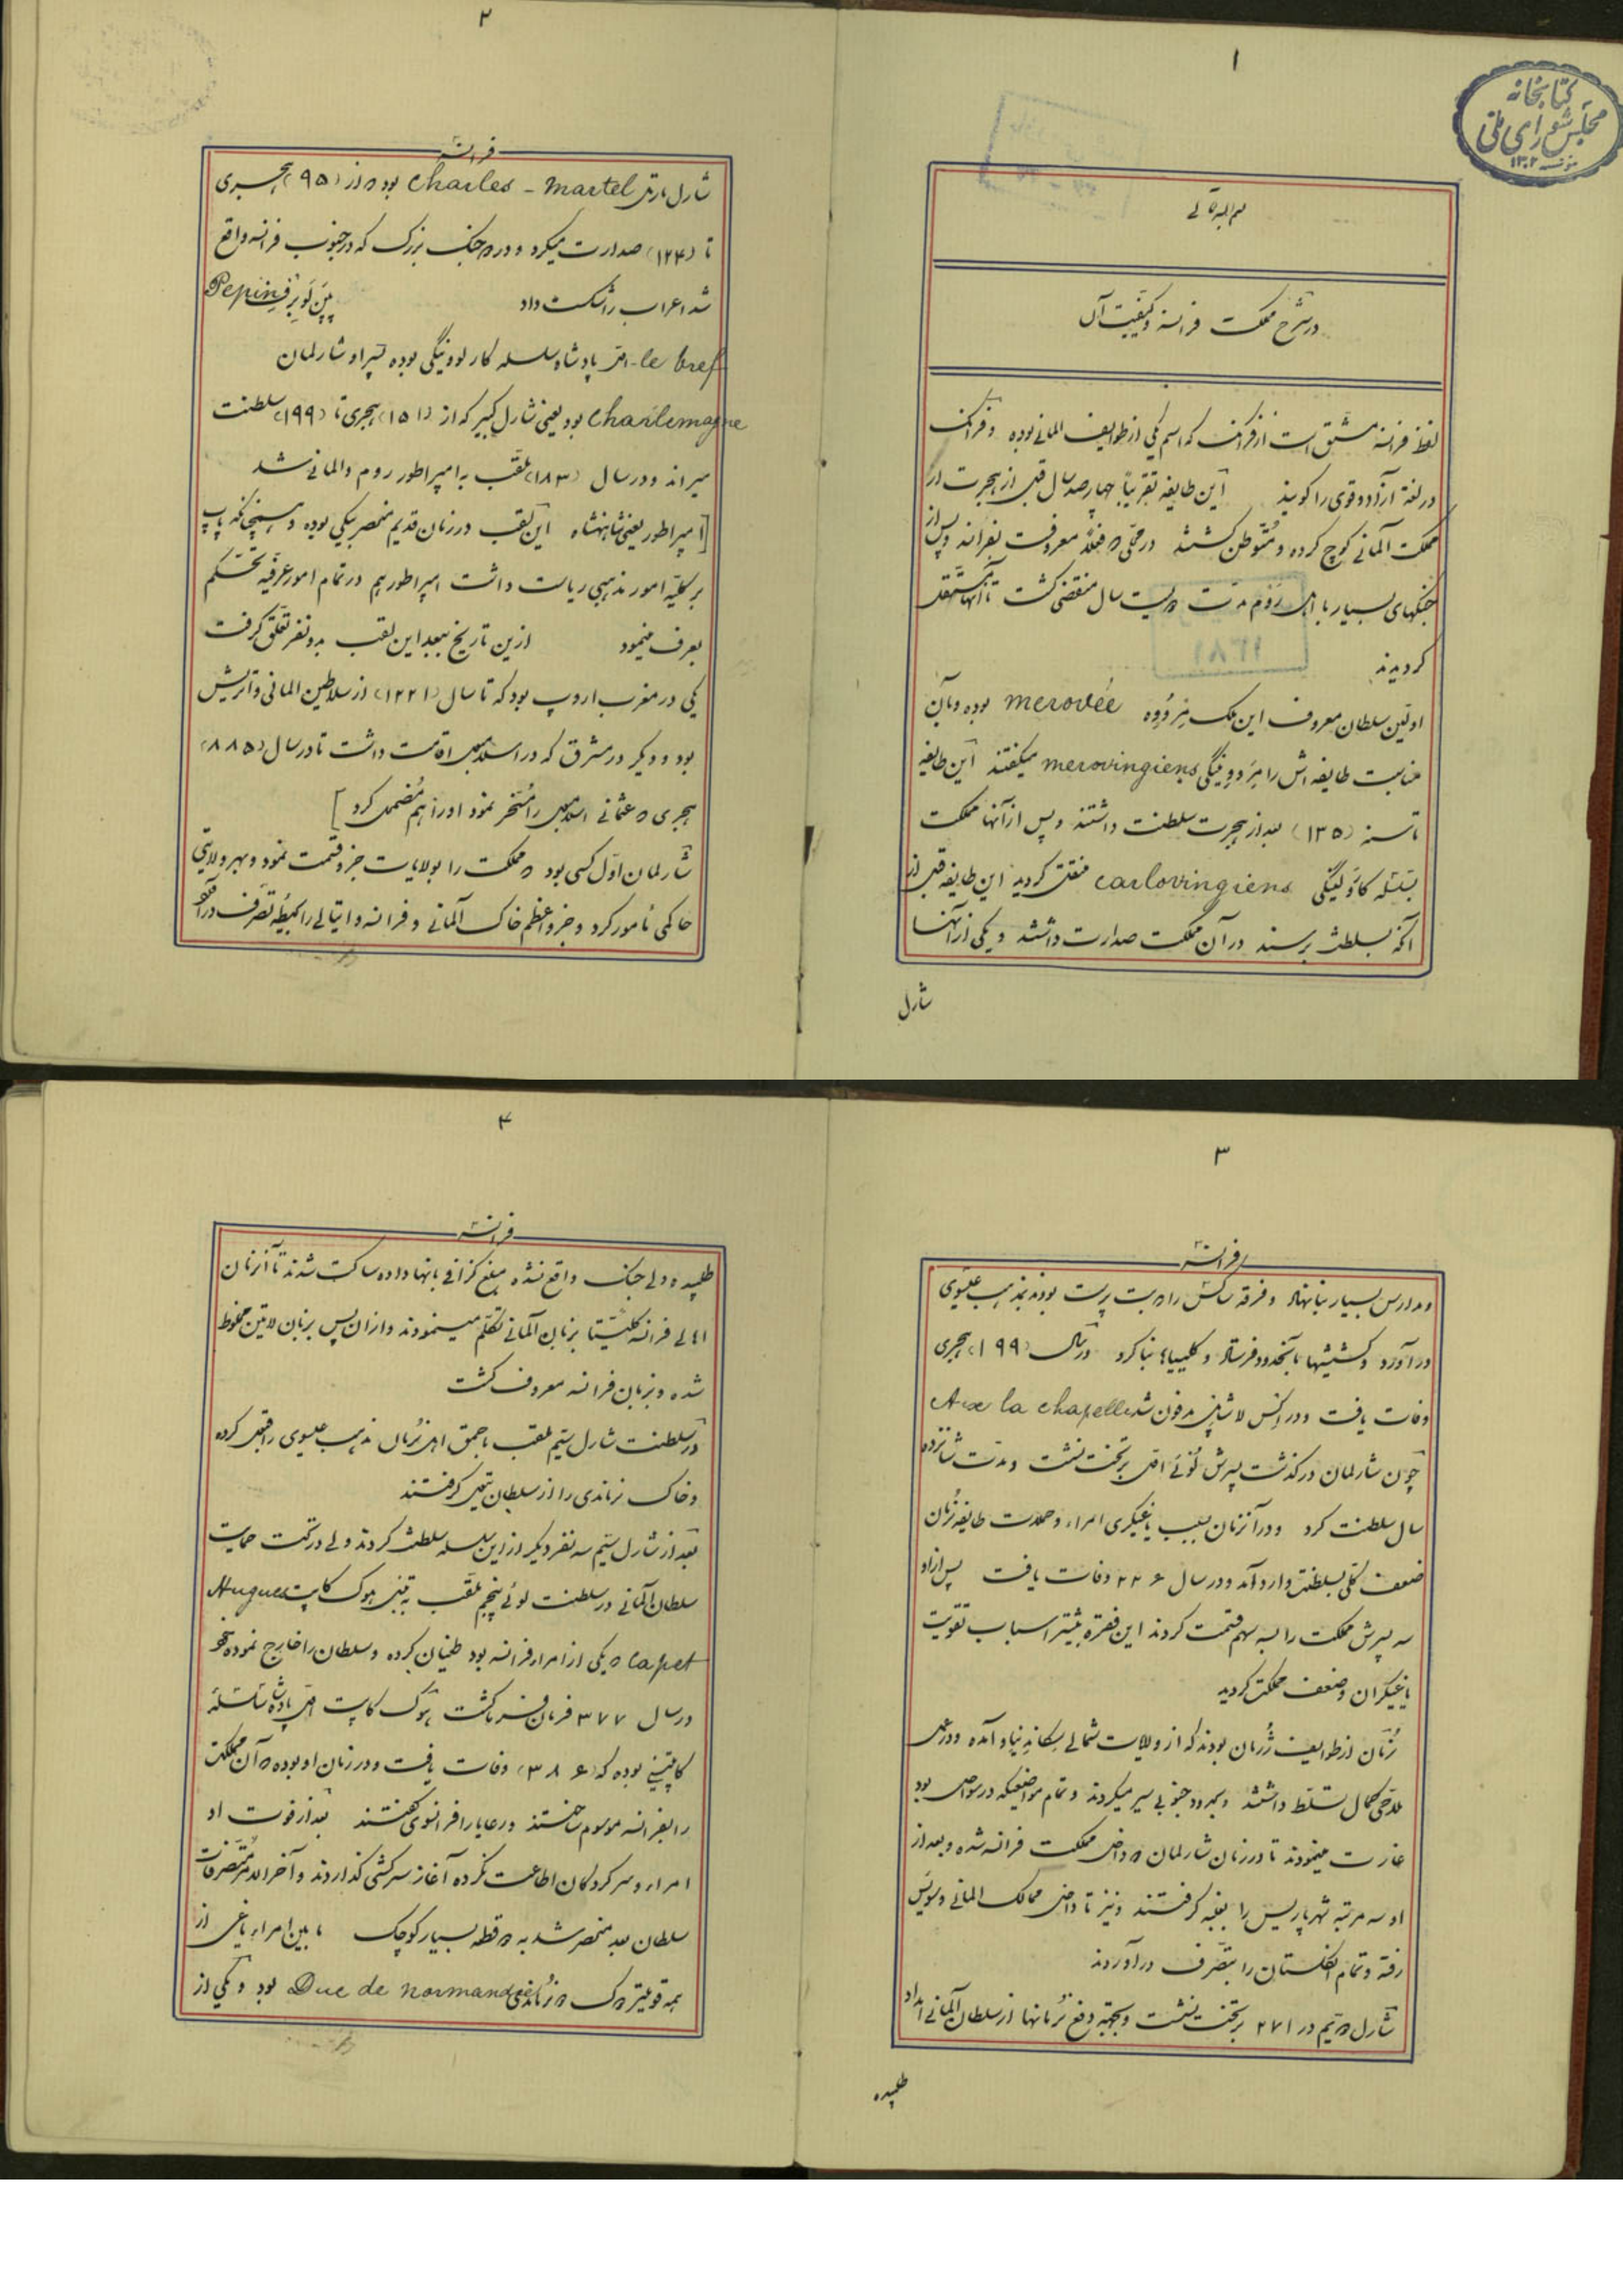 ۱
کتابخانه
مجلس شورای ملی
۱۳۰۲
در شرح مملکت فرانسه و کیفیت آن
لفظ فرانسه مشتق است از فرانک که اسم یکی از طوایف المانی بوده و فرانک
در لغة آزاد و قوی را گویند این طایفه تقریباً چهارصد سال قبل از هجرت از
مملکت آلمانی کوچ کرده و متوطن گشتند در محلی که فعلاً معروفست بفرانسه و پس از
جنگهای بسیار با اهل روم مدت دویست سال منقضی گشت تا آنها مستقل
گردیدند
اولین سلطان معروف این ملک مِرُووِه merovée بوده و بآن
مناسبت طایفه‌اش را مِرووینگی merovingiens میگفتند این طایفه
تا سنه (۱۳۵) بعد از هجرت سلطنت داشتند و پس از آنها مملکت
بسلسله carlovingiens منتقل گردید این طایفه قبل از
آنکه بسلطنت برسند در آن مملکت صدارت داشتند و یکی از آنها
شارل
۲
فرانسه
شارل مارتل charles - martel بود که از (۹۵) هجری
تا (۱۲۴) صدارت میکرد و در جنگ بزرگ که در جنوب فرانسه واقع
شد اعراب را شکست داد پپن لوبرف Pepin
le bref - اول پادشاه سلسله کارلووینگی بوده پسر او شارلمان
charlemagne بود یعنی شارل کبیر که از (۱۵۱) هجری تا (۱۹۹) سلطنت
میراند و در سال (۱۸۳) ملقب به امپراطور روم و المانی شد
[امپراطور یعنی شاهنشاه این لقب در زمان قدیم منحصر بیکی بوده و همچنانکه پاپ
بر کلیه امور مذهبی ریاست داشت امپراطور هم در تمام امور عرفیه تحکم
بعرف مینمود ازین تاریخ ببعد این لقب بدو نفر تعلق گرفت
یکی در مغرب اروپ بود که تا سال (۱۲۲۱) از سلاطین المانی و اتریش
بود و دیگر در مشرق که در اسلامبول اقامت داشت تا در سال (۸۸۵)
هجری که عثمانی اسلامبول را مسخر نمود او را هم مضمحل کرد]
شارلمان اول کسی بود که مملکت را بولایات جزو قسمت نمود و بهر ولایتی
حاکمی مأمور کرد و جزو اعظم خاک آلمانی و فرانسه و ایتالی را بحیطه تصرف در آورد
۳
فرانسه
و مدارس بسیار بنا نهاد و فرقه ساکس را که بت پرست بودند بمذهب عیسوی
در آورد و کشیشها بآنحدود فرستاد و کلیساها بنا کرد در سال (۱۹۹) هجری
وفات یافت و در اکس لا شاپل مدفون شد Aix la chapelle
چون شارلمان درگذشت پسرش لوئی اول بر تخت نشست و مدت شانزده
سال سلطنت کرد و در آنزمان بسبب یاغیگری امراء و حملات طایفه نُرمان
ضعف کلی بسلطنت وارد آمد و در سال ۲۲۶ وفات یافت پس از او
سه پسرش مملکت را بسه سهم قسمت کردند این فقره بیشتر اسباب تقویت
یاغیگران و ضعف مملکت گردید
نُرمان از طوایف ژرمان بودند که از ولایات شمالی اسکاندیناو آمده و در عمل
ملاحی کمال تسلط داشتند و بحدود جنوبی سیر میکردند و تمام مواضعیکه در سواحل بود
غارت مینمودند تا در زمان شارلمان که داخل مملکت فرانسه شده و بعد از
او سه مرتبه شهر پاریس را بغلبه گرفتند و نیز تا داخل ممالک المانی و سویس
رفته و تمام انگلستان را بتصرف در آوردند
شارل سیم در ۲۷۱ بر تخت نشست و بجهة دفع نرمانها از سلطان آلمانی امداد
طلبیده
۴
فرانسه
طلبیده ولی جنگ واقع نشده مبلغ گزافی بانها داده ساکت شدند تا آنزمان
اهالی فرانسه کلیتاً بزبان آلمانی تکلم مینمودند و از ان پس بزبان لاتین مخلوط
شده و بزبان فرانسه معروف گشت
در سلطنت شارل سیم ملقب باحمق اهل نرمان مذهب عیسوی را قبول کرده
و خاک نرماندی را از سلطان بتیول گرفتند
بعد از شارل سیم سه نفر دیگر از این سلسله سلطنت کردند ولی در تحت حمایت
سلطان آلمانی در سلطنت لوئی پنجم ملقب به تنبل هوگ کاپت Hugues
capet که یکی از امراء فرانسه بود طغیان کرده و سلطان را خارج نموده خود
در سال ۳۷۷ فرمان فرما گشت هوگ کاپت اول پادشاه سلسله
کاپتین بوده که (۳۸۶) وفات یافت و در زمان او بوده که آن مملکت
را بفرانسه موسوم ساختند و رعایا را فرانسوی گفتند بعد از فوت او
امراء و سرکردگان اطاعت نکرده آغاز سرکشی گذاردند و آخر الامر متصرفات
سلطان بعد منحصر شد به قطعه بسیار کوچک مابین امراء یاغی از
همه قویتر دوک نرماندی Duc de normandie بود و یکی از